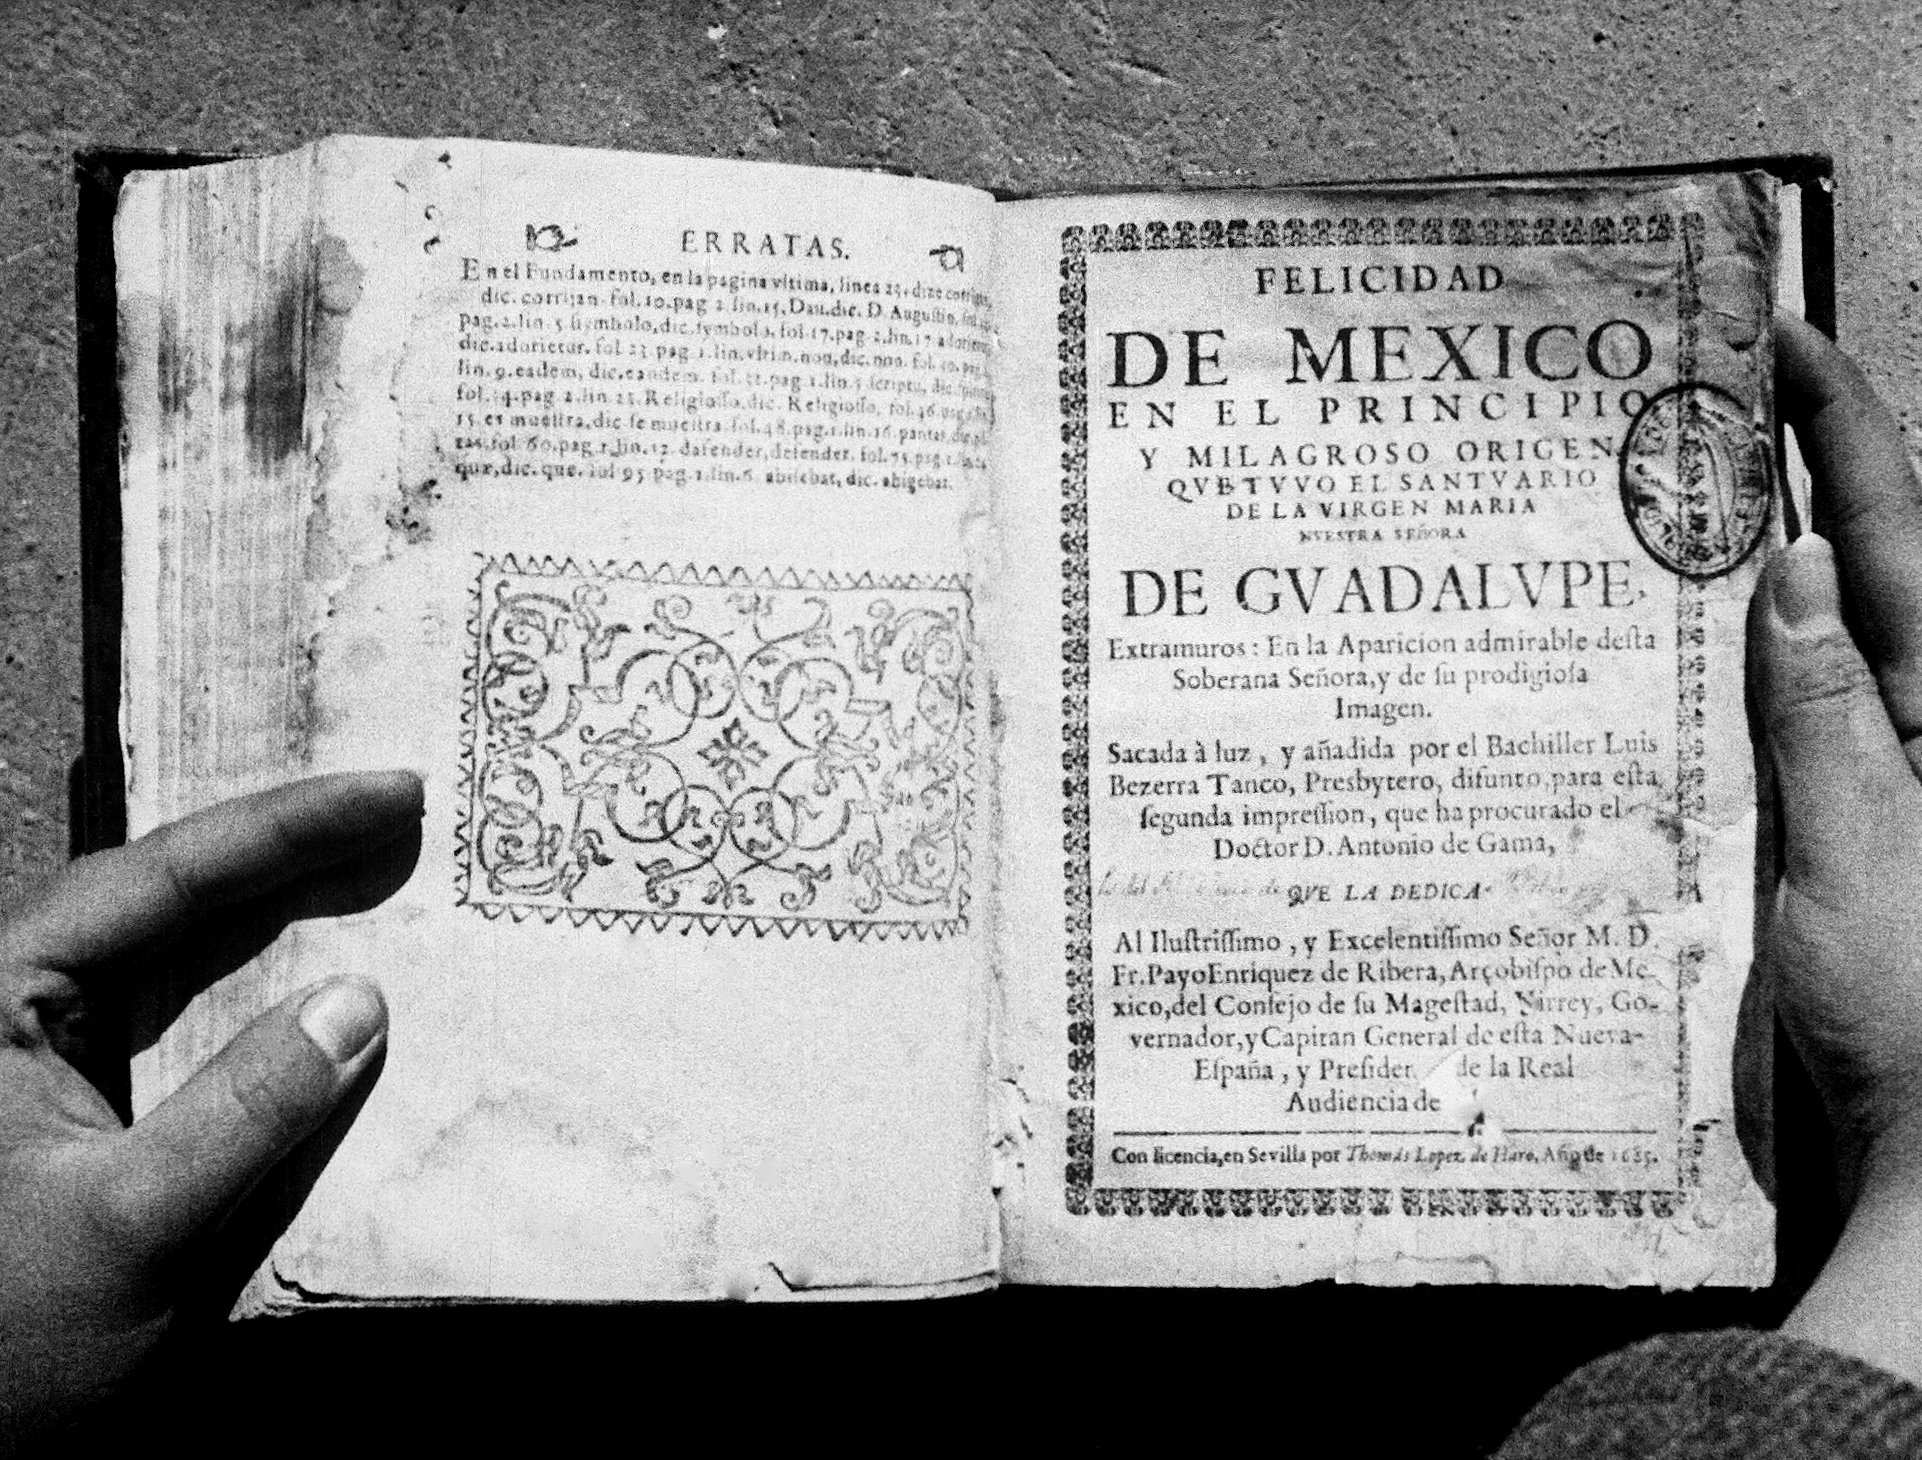 ERRATAS.
En el Fundamento, en la pagina vltima, linea 25, dize
dic. corrijan. fol. 10. pag 2. lin. 15. Dau. dic. D. Augustin.
pag. 2. lin. 5 symbolo, dic. symbolo. fol. 17. pag. 2. lin. 17
dic. adorietur. fol 23. pag. 1. lin. vltim. non, dic. nno. fol.
lin. 9. eadem, dic. eandem. pag. 1. lin. 5
pag. 2. lin 23. Religiosso, dic. Religiosso,
15. es muestra, dic. se muestra. fol. 48. pag. 1. lin. 16.
fol 60. pag. 1. lin. 12. dafender, defender. fol. 75. pag
quæ, dic. que. fol 95. pag. 1. lin. 6. dic. abigebat.
FELICIDAD
DE MEXICO
EN EL PRINCIPIO
Y MILAGROSO ORIGEN
QVE TVVO EL SANTVARIO
DE LA VIRGEN MARIA
NVESTRA SEÑORA
DE GVADALVPE,
Extramuros: En la Aparicion admirable desta
Soberana Señora, y de su prodigiosa
Imagen.
Sacada à luz, y añadida por el Bachiller Luis
Bezerra Tanco, Presbytero, difunto, para esta
segunda impression, que ha procurado el
Doctor D. Antonio de Gama,
QVE LA DEDICA
Al Ilustrissimo, y Excelentissimo Señor M. D.
Fr. Payo Enriquez de Ribera, Arçobispo de Me-
xico, del Consejo de su Magestad, Virrey, Go-
vernador, y Capitan General de esta Nueva-
España, y Presiden de la Real
Audiencia de
Con licencia, en Sevilla por Thomàs Lopez de Haro, Año de 1685.